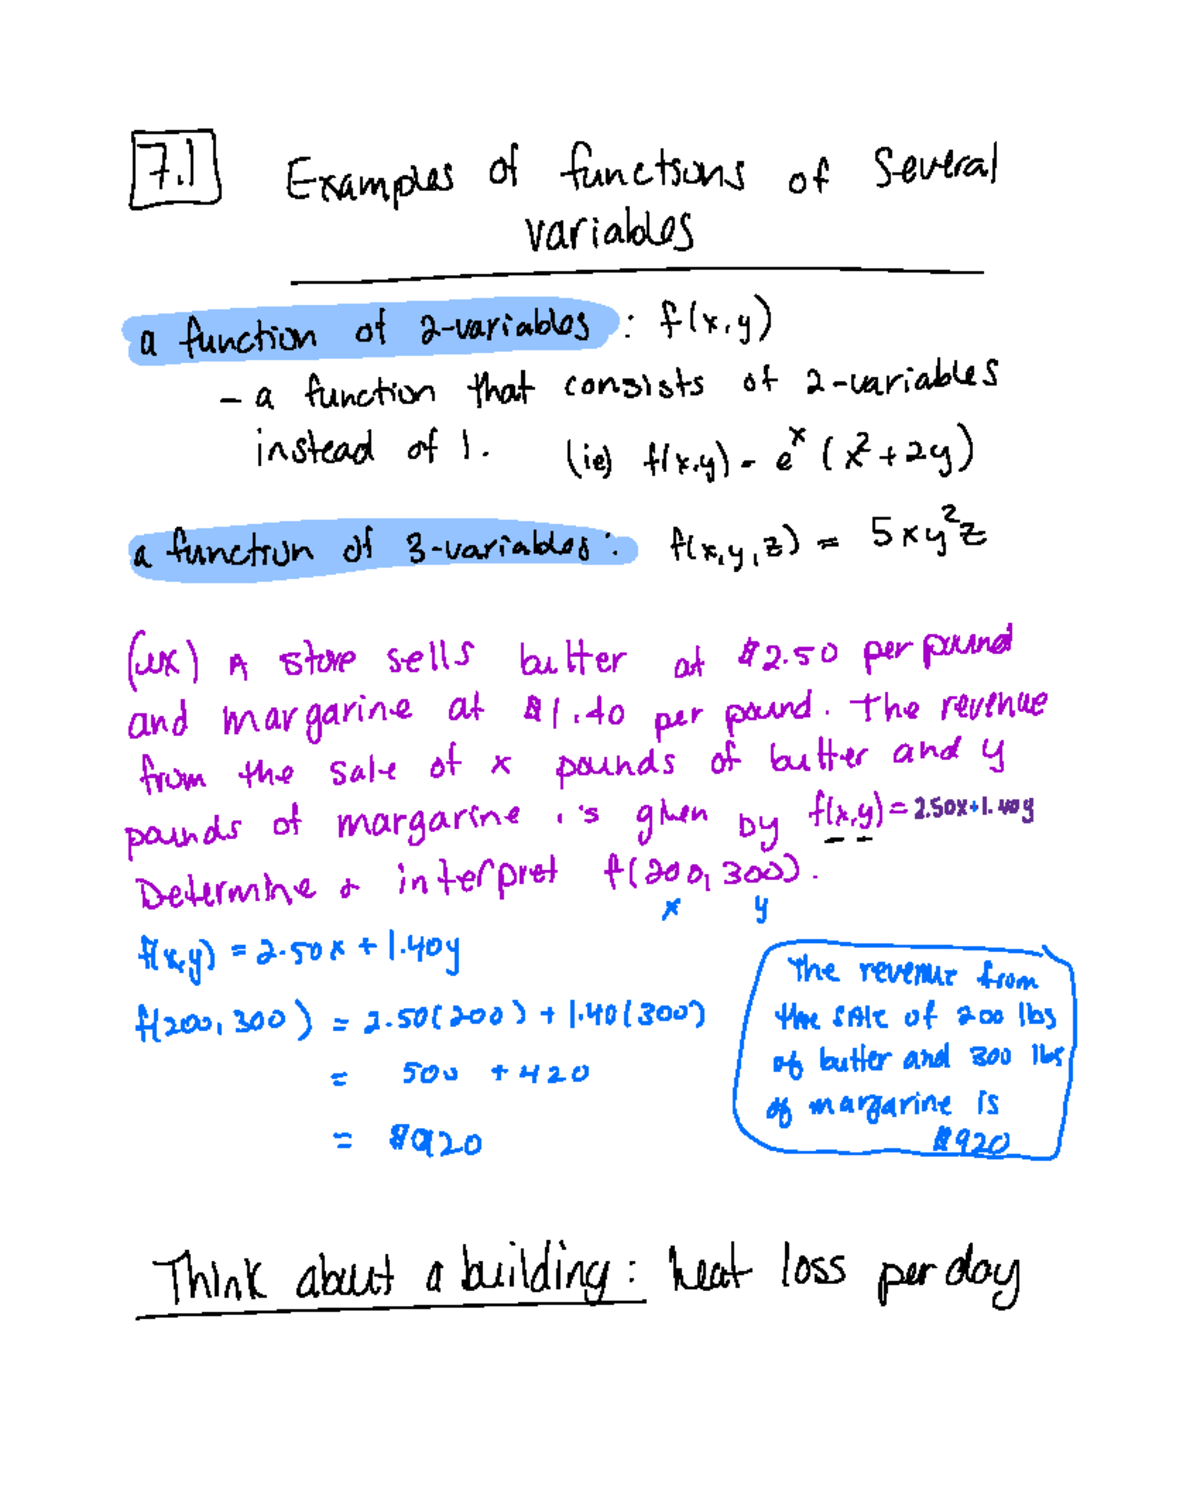 7.1 Examples of functions of several
variables
a function of 2-variables : f(x,y)
- a function that consists of 2-variables
instead of 1. (ie) f(x,y) = e^x (x² + 2y)
a function of 3-variables : f(x,y,z) = 5xy²z
(ex) A store sells butter at $2.50 per pound
and margarine at $1.40 per pound. The revenue
from the sale of x pounds of butter and y
pounds of margarine is given by f(x,y) = 2.50x+1.40y
Determine & interpret f(200, 300).
x y
f(x,y) = 2.50x + 1.40y
f(200, 300) = 2.50(200) + 1.40(300)
= 500 + 420
= $920
The revenue from
the sale of 200 lbs
of butter and 300 lbs
of margarine is
$920
Think about a building : heat loss per day